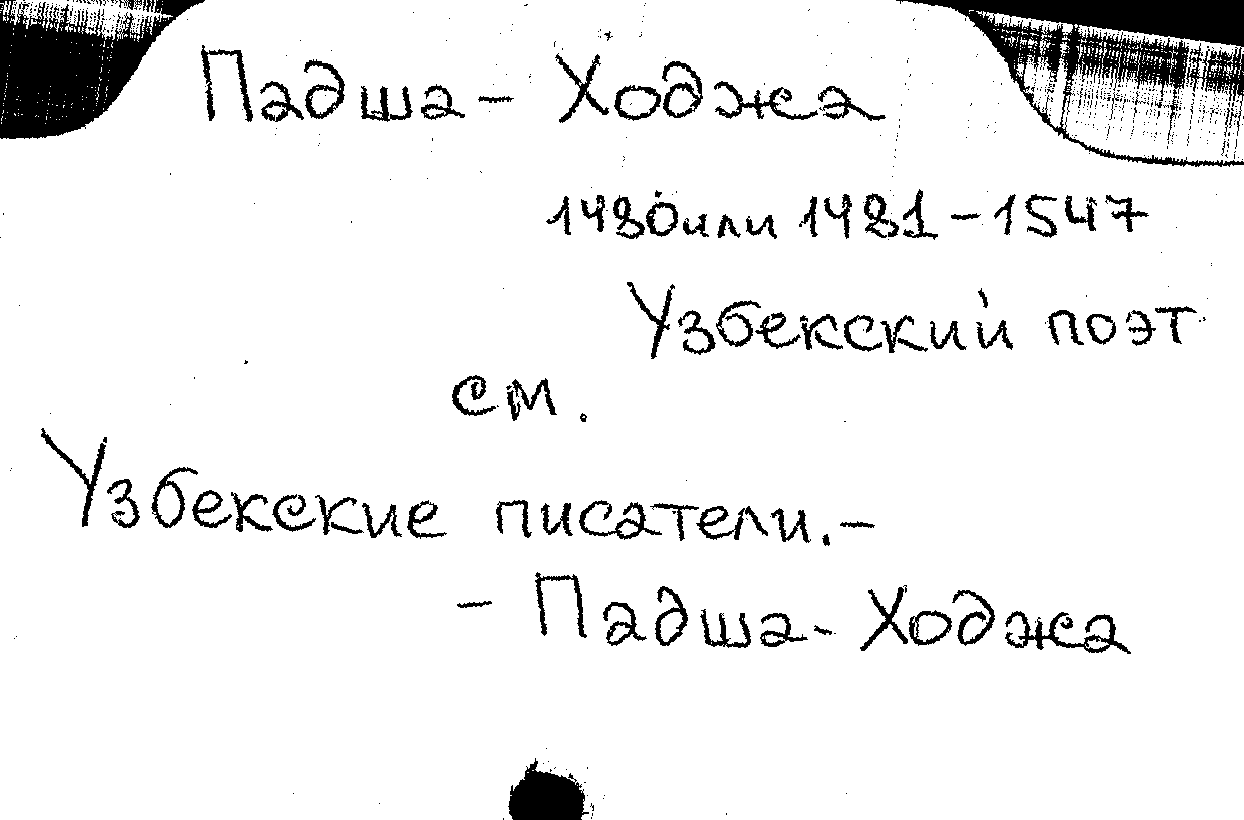 Падша - Ходжа
1480 или 1481 - 1547
Узбекский поэт
см.
Узбекские писатели. -
- Падша - Ходжа